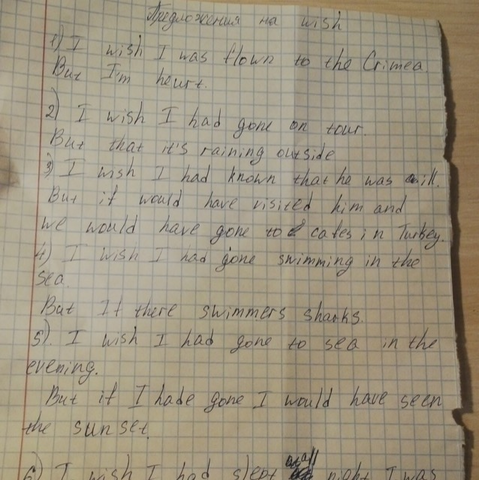 Предложения на wish
1) I wish I was flown to the Crimea
But I'm heurt.
2) I wish I had gone on tour.
But that it's raining outside
3) I wish I had known that he was ill.
But if would have visited him and
we would have gone to cates in Turkey.
4) I wish I had gone swimming in the
sea.
But If there swimmers sharks.
5) I wish I had gone to sea in the
evening.
But if I hade gone I would have seen
the sunset.
6) I wish I had slept at all night I was